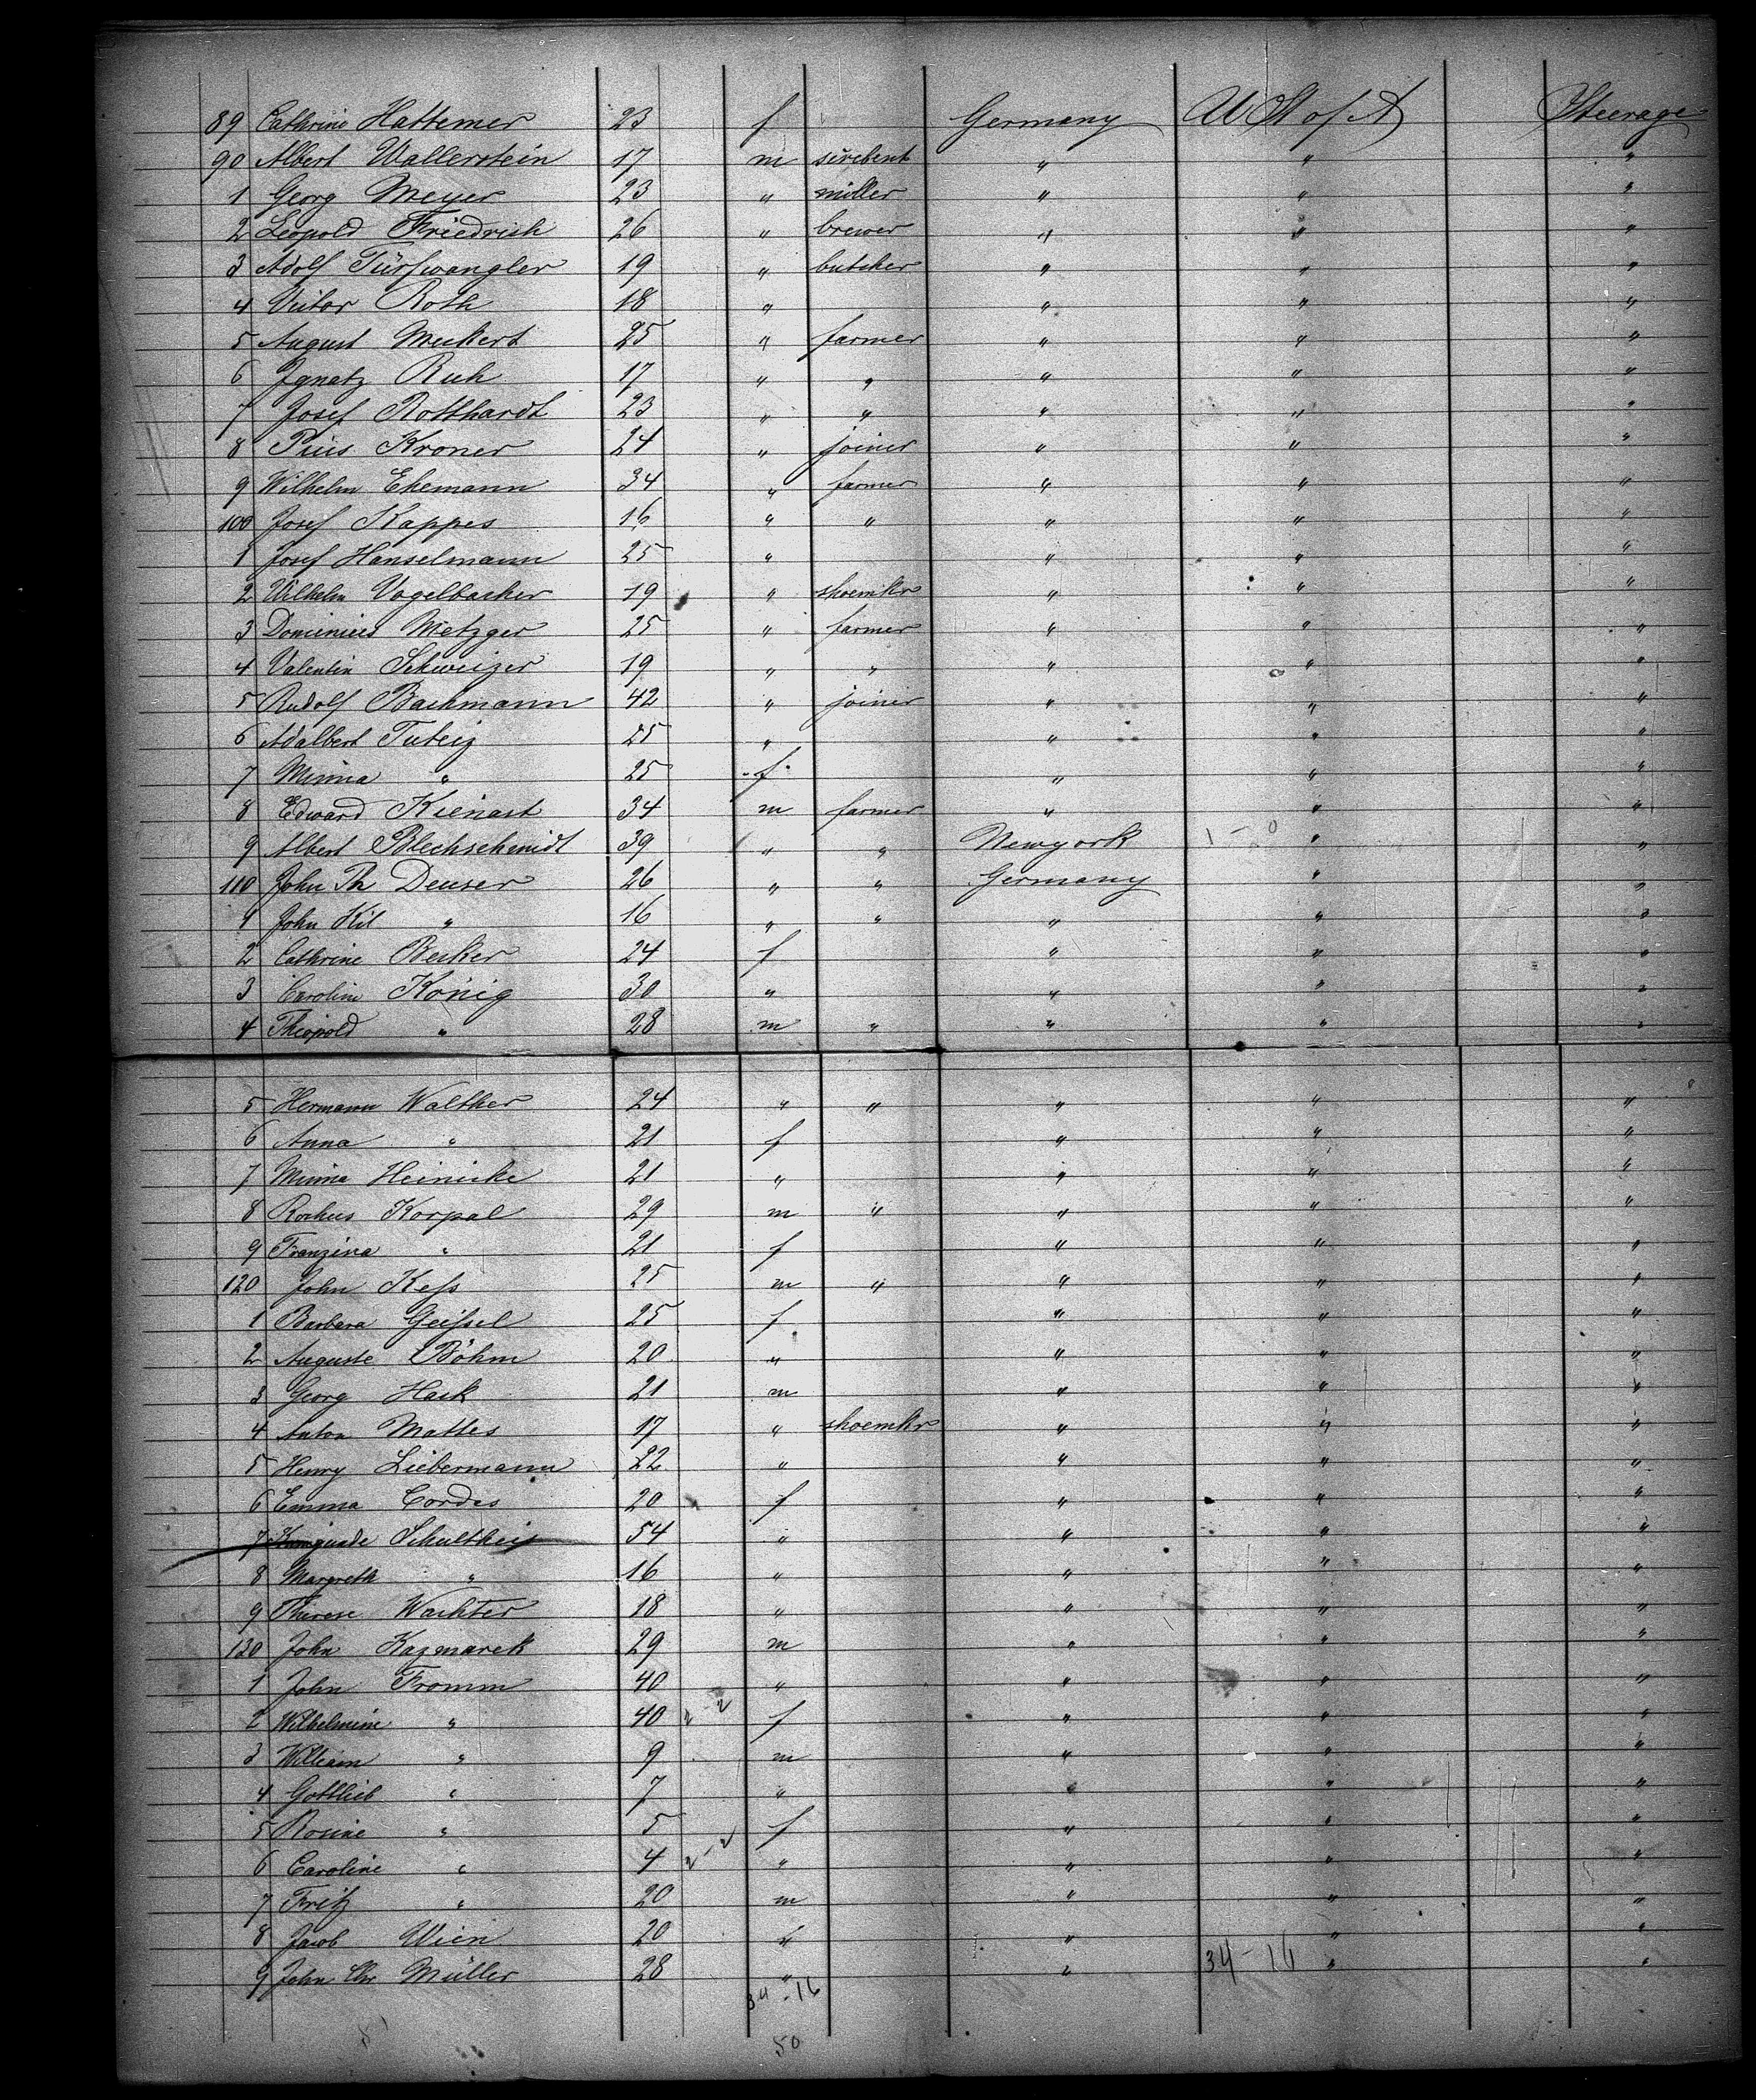 89 Cathrine Hattemer 23 f Germany U St of A Steerage
90 Albert Wallerstein 17 m " " "
1 Georg Meyer 23 " miller " " "
2 Leopold Friedrich 26 " brewer " " "
3 Adolf Türſwangler 19 " butcher " " "
4 Victor Roth 18 " " " "
5 August Meckert 25 " farmer " " "
6 Ignatz Ruh 17 " " " " "
7 Josef Rotthardt 23 " " " " "
8 Pius Kroner 24 " joiner " " "
9 Wilhelm Ehemann 34 " farmer " " "
100 Josef Kappes 16 " " " " "
1 Josef Hanselmann 25 " " " "
2 Wilhelm Vogelbacher 19 " shoemkr " " "
3 Dominicus Metzger 25 " farmer " " "
4 Valentin Schweizer 19 " " " " "
5 Rudolf Bachmann 42 " joiner " " "
6 Adalbert Tuteiz 25 " " " "
7 Minna " 25 f " " "
8 Edward Kienast 34 m farmer " " "
9 Albert Blechschmidt 39 " " Newyork 1 - 0 " "
110 John Th Deuser 26 " " Germany " "
1 John Kil " 16 " " " " "
2 Cathrine Becker 24 f " " "
3 Caroline König 30 " " " "
4 Theopold " 28 m " " " "
5 Hermann Walther 24 " " " " "
6 Anna " 21 f " " "
7 Minna Heinicke 21 " " " "
8 Rochus Korpal 29 m " " " "
9 Franzina " 21 f " " "
120 John Keſs 25 m " " " "
1 Barbara Geiſsel 25 f " " "
2 Auguste Böhm 20 " " " "
3 Georg Hack 21 m " " "
4 Anton Mattes 17 " shoemkr " " "
5 Henry Liebermann 22 " " " "
6 Emma Cordes 20 f " " "
7 Schultheis 54 " " " "
8 Margreth " 16 " " " "
9 Therese Wachter 18 " " " "
130 John Kazmarek 29 m " " "
1 John Fromm 40 " " " "
2 Wilhelmine " 40 f " " "
3 William " 9 m " " "
4 Gottlieb " 7 " " " "
5 Rosine " 5 f " " "
6 Caroline " 4 " " " "
7 Fritz " 20 m " " "
8 Jacob Wien 20 " " " "
9 John Chr Müller 28 " " 34 - 16 " "
34 - 16
50